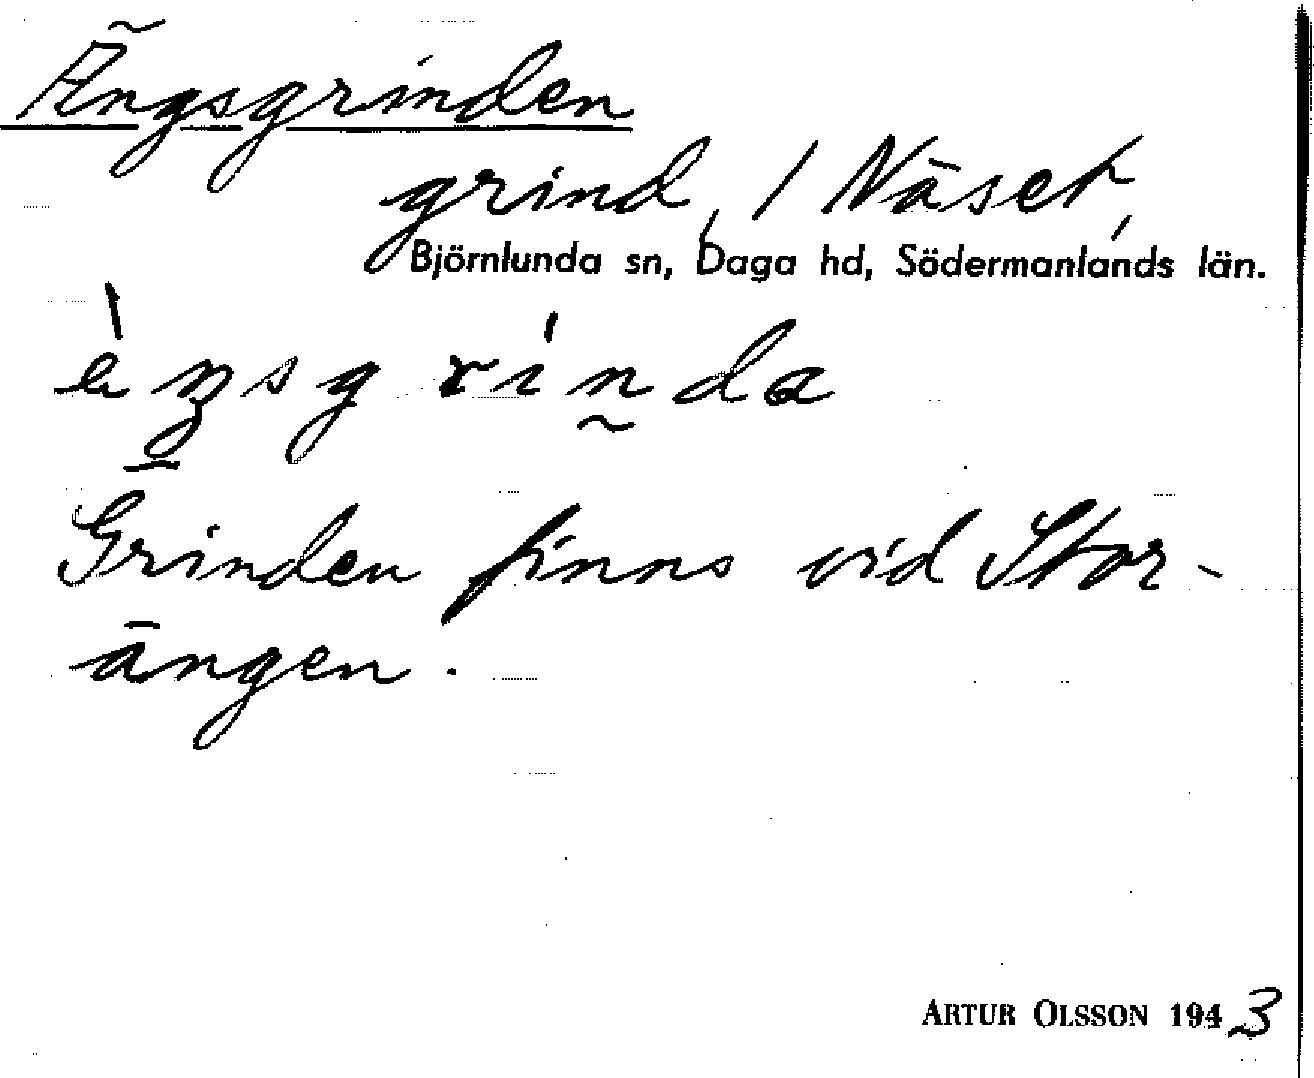 Ängsgrinden
grind, 1 Näset,
Björnlunda sn, Daga hd, Södermanlands län.
Grinden finns vid Stor-
ängen.
ARTUR OLSSON 1943